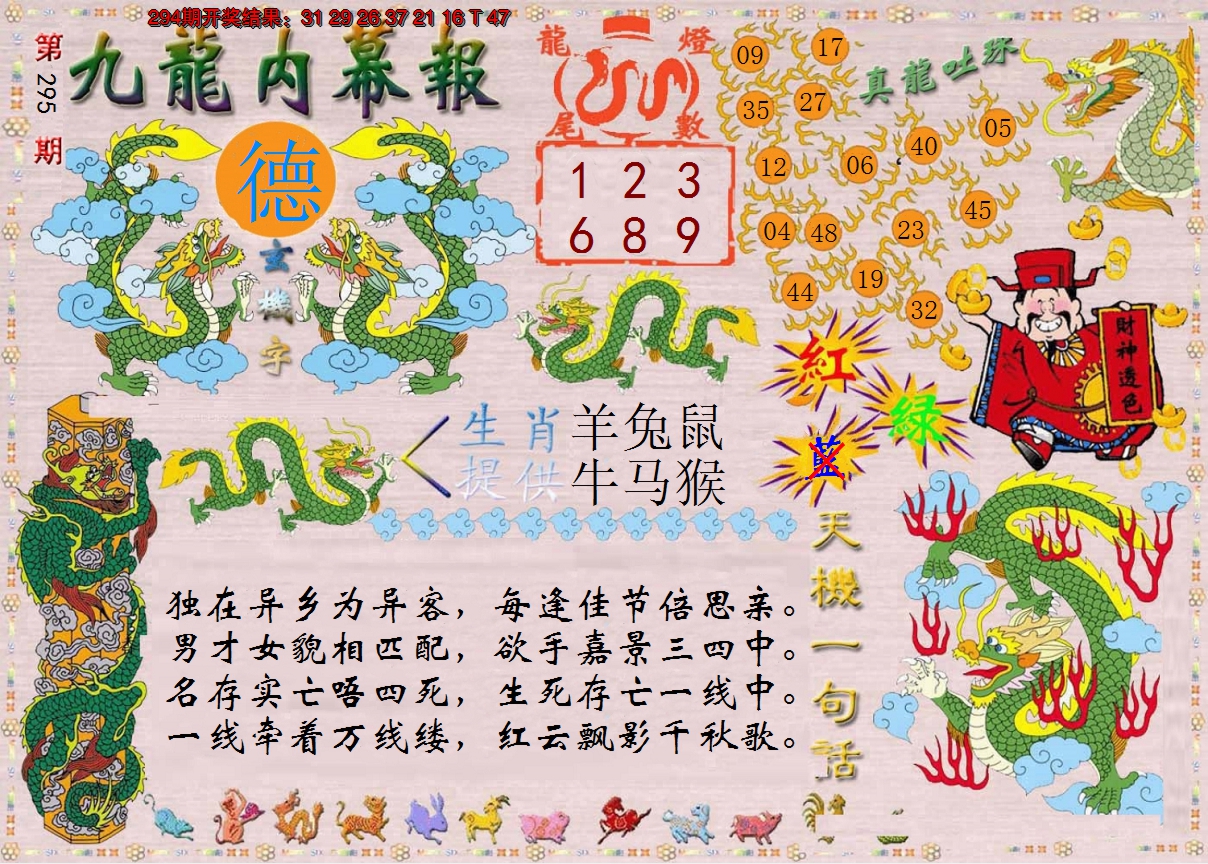 294期开奖结果：31 29 26 37 21 16 T 47
第295期
九龍内幕報
德
玄機字
龍燈
尾數
1 2 3
6 8 9
真龍吐珠
09 17
35 27
40 05
12 06
45
04 48 23
44 19
32
財神透色
紅
綠
藍
生肖 羊兔鼠
提供 牛马猴
天機一句話
独在异乡为异客，每逢佳节倍思亲。
男才女貌相匹配，欲手嘉景三四中。
名存实亡唔四死，生死存亡一线中。
一线牵着万线缕，红云飘影千秋歌。